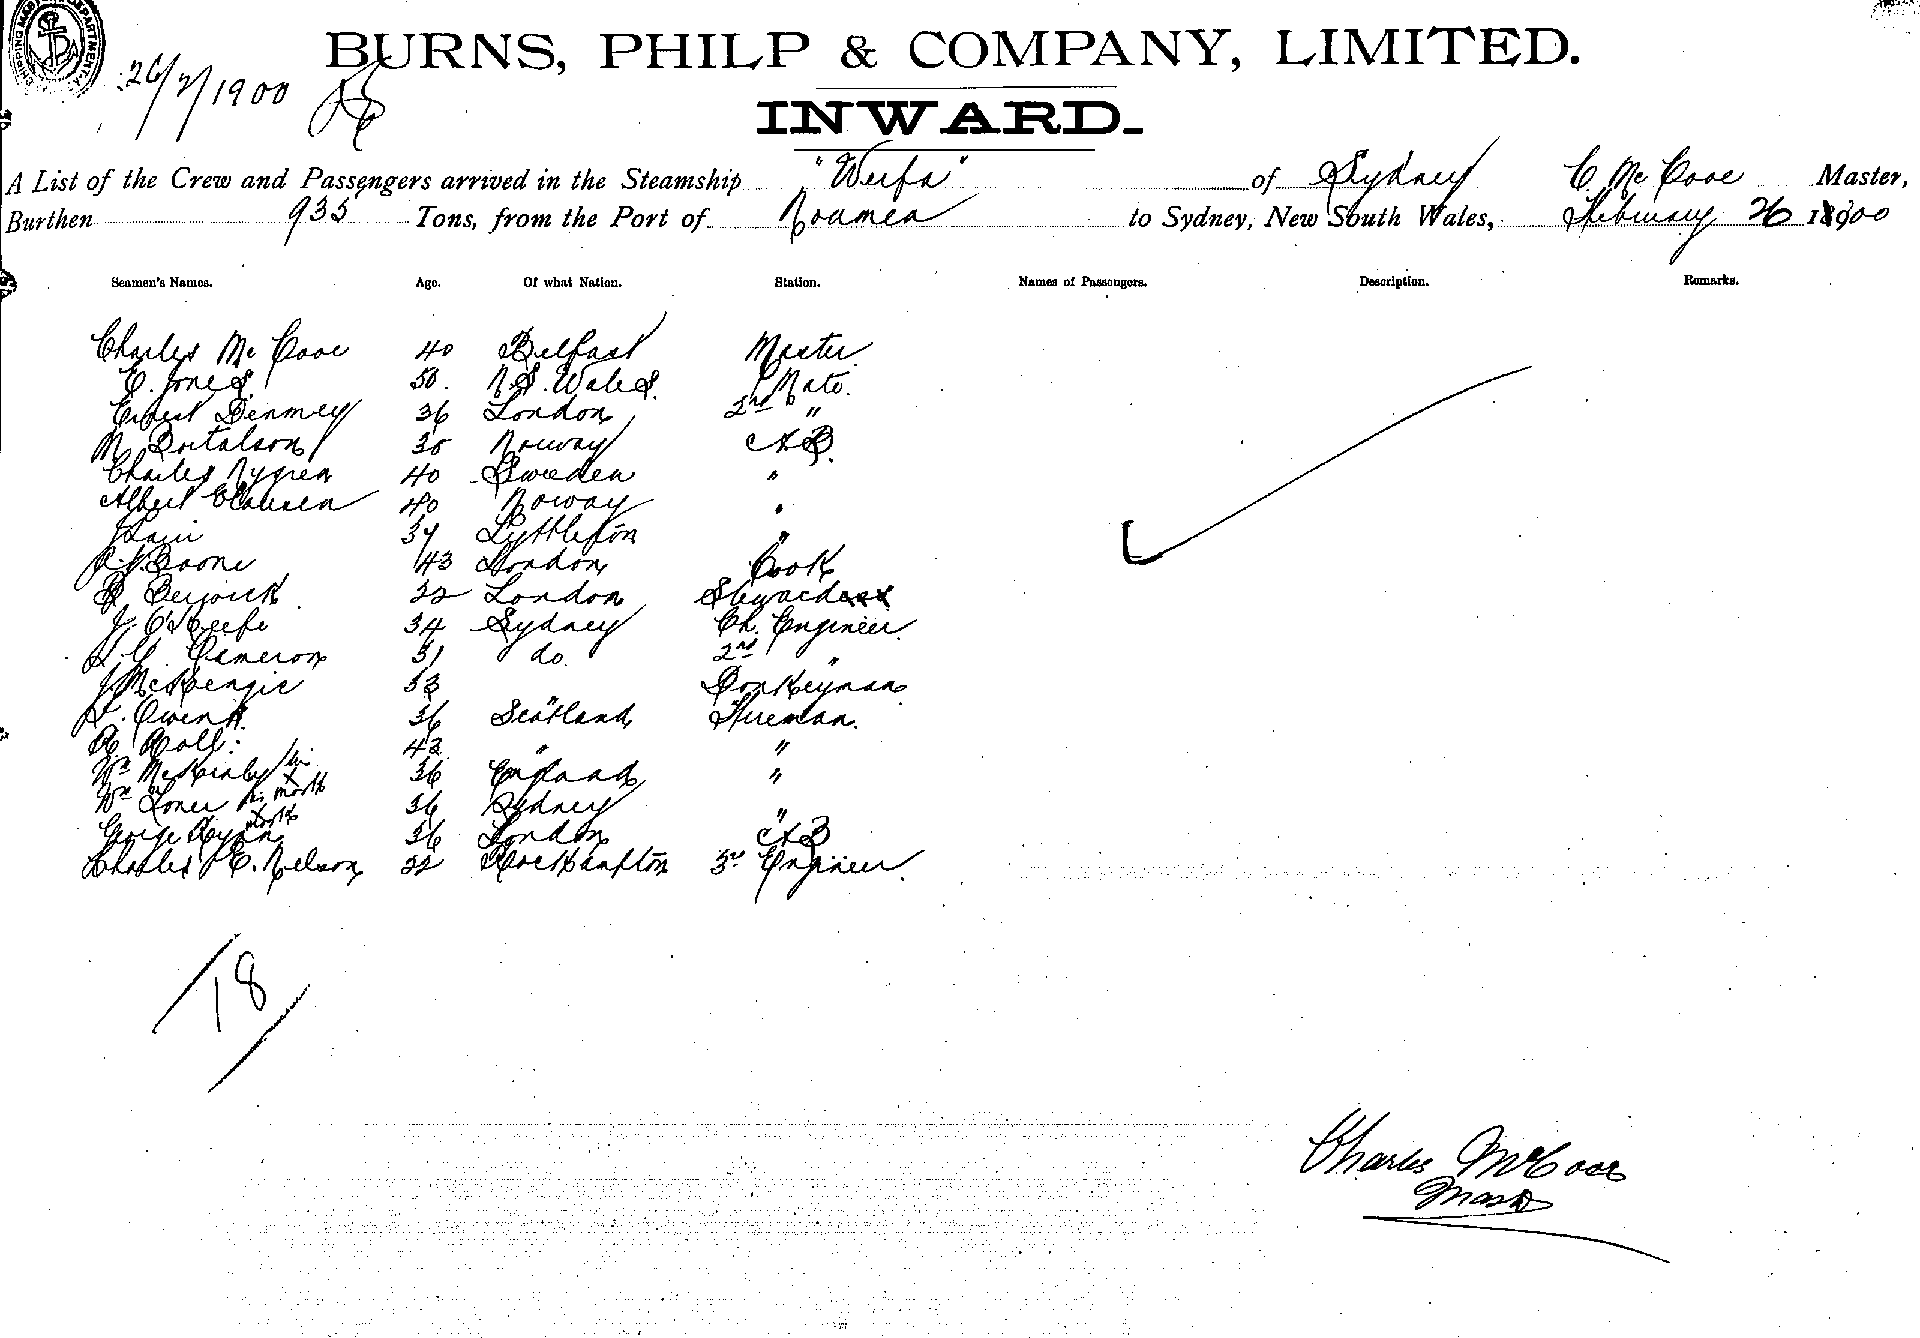 SHIPPING MASTER'S DEPARTMENT
26/2/1900
BURNS, PHILP & COMPANY, LIMITED.
INWARD.
A List of the Crew and Passengers arrived in the Steamship "Werfa" of Sydney C McCooe Master,
Burthen 935 Tons, from the Port of Noumea to Sydney, New South Wales, February 26 1900
Seamen's Names. Age. Of what Nation. Station. Names of Passengers. Description. Remarks.
Charles McCooe 40 Belfast Master
E. Jones 50. N.S. Wales. Mate.
Ernest Denmey 36 London 2nd "
N 30 Norway AB.
Charles Nygren 40 Sweden "
Albert Clausen 40 Norway "
J 37 Lyttleton "
Boone 43 London Cook
Berwick 22 London Steward
J. O'Keefe 34 Sydney Ch. Engineer.
Cameron 31 do. 2nd "
J McKenzie 33 " Donkeyman
Owens 36 Scotland Fireman.
42 " "
Wm McKinley his x mark 36 England "
Wm his x mark 36 Sydney "
George 36 London AB
Charles E. Nelson 22 Rockhampton 3rd Engineer.
18
Charles McCooe
Master